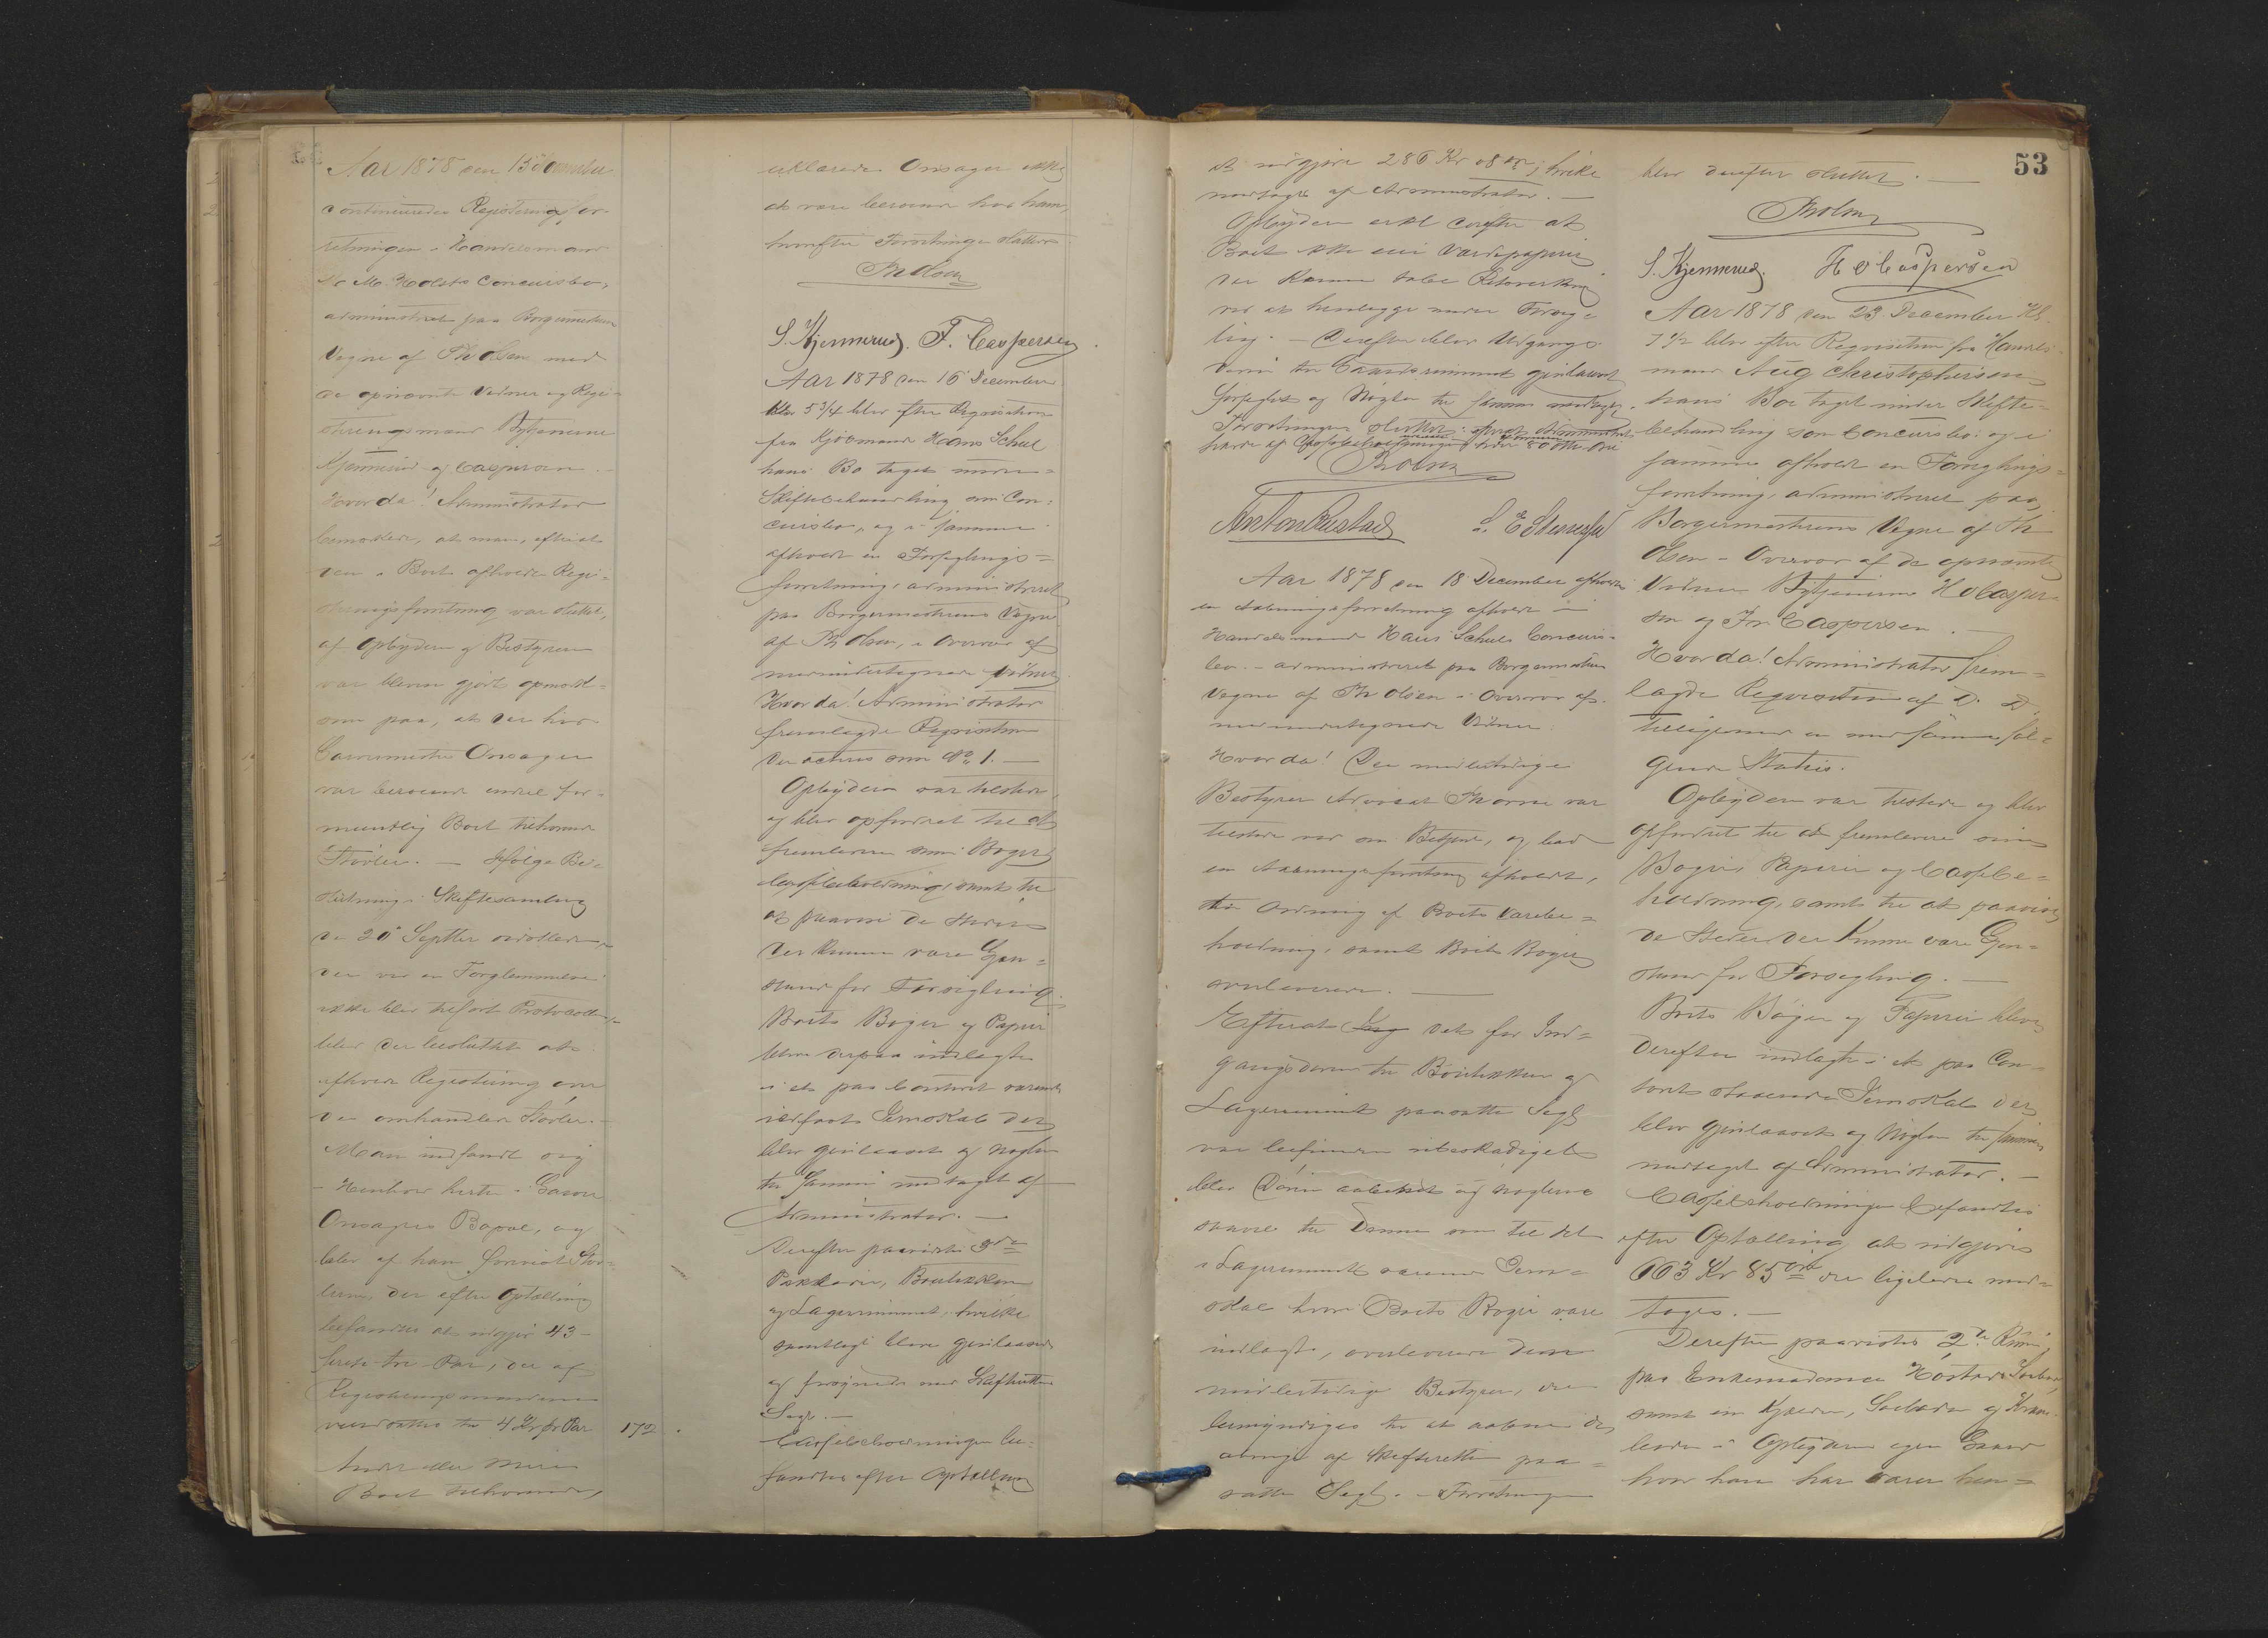 Aar 1878 den 13 December
continueredes Registreringsfor-
retningen i Handelsmand
M. Holsts Concursbo,
administreret paa Borgermesterens
Vegne af Th Olsen med
de opnævnte Vidner og Regi-
streringsmænd Bytjenerne
Kjennerud og Caspersen.
Hvorda! Administrator
bemærkede, at man, efterat
den i Boet afholdte Regi-
streringsforretning var sluttet,
af Opbyderen og Bestyreren
var bleven gjort opmærk-
som paa, at der hos
Garvermester Onsager
var beroende endel for-
mentlig Boet tilhørende
Støvler. — Ifølge Be-
slutning i Skiftesamling
den 20 Septbr
der ved en Forglemmelse
ikke blev tilført Protocollen,
blev der besluttet at
afholde Registrering over
de omhandlede Støvler. —
Man indfandt sig
Henhold hertil i Garver
Onsagers Bopæl, og
blev af ham forevist Støv-
lerne, der efter Optælling
befandtes at udgjøre 43 —
firti tre — Par, der af
Registreringsmændene
værdsattes til 4 Kr pr Par 172.
Andet eller mere
Boet tilhørende,
erklærede Onsager ikke
at være beroende hos ham,
hvorefter Forretningen sluttedes
Th Olsen
S. Kjennerud. F. Caspersen.
Aar 1878 den 16 December
Kl. 5 3/4 blev efter Requisition
fra Kjøbmand Hans Schee
hans Bo taget under
Skiftebehandling som Con-
cursbo, og i samme
afholdt en Forseglings-
forretning, administreret
paa Borgermesterens Vegne
af Th Olsen, i Overvær af
medundertegnede Vidner
Hvorda! Administrator
fremlagde Requisition
der acteres som No 1. —
Opbyderen var tilstede,
og blev opfordret til at
fremlevere sine Bøger,
Cassebeholdning, samt til
at paavise de Steder
der kunne være Gjen-
stand for Forsegling.
Boets Bøger og Papirer
bleve derpaa indlagte
i et paa Contoret værende
ildfast Jernskab der
blev gjenlaaset og Nøglen
til samme modtaget af
Administrator. —
Derefter paavistes 3de
Pakboder, Boutikken
og Lagerrummet, hvilke
samtlige bleve gjenlaasede
og forsynede med Skifterettens
Segl. —
Cassebeholdningen be-
fandtes efter Optælling
53
at udgjøre 286 Kr 08 Øre, hvilke
modtoges af Administrator. —
Opbyderen erkl derefter at
Boet ikke eier Værdipapirer
der kunne have Retsvirkning
ved at henlægges under Forseg-
ling. — Derefter blev Udgangs-
døren til Gaardsrummet gjenlaaset
forseglet og Nøglen til samme modtaget.
Forretningen sluttet
Th Olsen
Anton Rustad
Aar 1878 den 18 December afholdtes
en Aabningsforretning afholdt i
Handelsmand Hans Schees Concurs-
bo. — administreret paa Borgermesterens
Vegne af Th Olsen i Overvær af
medundertegnede Vidner
Hvorda! Den midlertidige
Bestyrer Advocat Thorne var
tilstede
en Aabningsforretning afholdt,
Ordning af Boets Varebe-
holdning, samt Boets Bøger
overleverede. —
Efterat det for Ind-
gangsdøren til Boutikken og
Lagerrummet paasatte Segl
var befunden ubeskadiget
blev Døren aabnet og Nøglerne
saavel til denne som til det
i Lagerrummet værende Jern-
skab hvori Boets Bøger vare
indlagte, overleverede den
midlertidige Bestyrer, der
bemyndiges til at aabne de
øvrige af Skifteretten paa-
satte Segl. — Forretningen
blev derefter sluttet. —
Th Olsen
S. Kjennerud. H O Caspersen
Aar 1878 den 23 December Kl.
7 1/2 blev efter Requisition fra Handels-
mand Aug Christophersen
hans Bo taget under Skifte-
behandling som Concursbo og i
samme afholdt en Forseglings-
forretning, administreret paa
Borgermesterens Vegne af Th
Olsen — Overvær af de opnævnte
Vidner Bytjenerne H O Casper-
sen og Fr Caspersen. —
Hvorda! Administrator frem-
lagde Requisition af D. D.
tilligemed en med samme føl-
gende Status.
Opbyderen var tilstede og blev
opfordret til at fremlevere sine
Bøger, Papirer og Cassebe-
holdning, samt til at paavise
de Steder, der kunne være Gjen-
stand for Forsegling. —
Boets Bøger og Papirer bleve
derefter indlagte i et paa Con-
toret staaende Jernskab der
blev gjenlaaset og Nøglen til samme
modtaget af Administrator. —
Cassebeholdningen befandtes
efter Optælling at udgjøre
663 Kr 85 Øre der ligeledes mod-
toges. —
Derefter paavistes 2de Rum
paa Enkemadame
samt en Kjælder, Søebod og Kram-
boden i Opbyderens egen Gaard
hvor han har Varer hen-